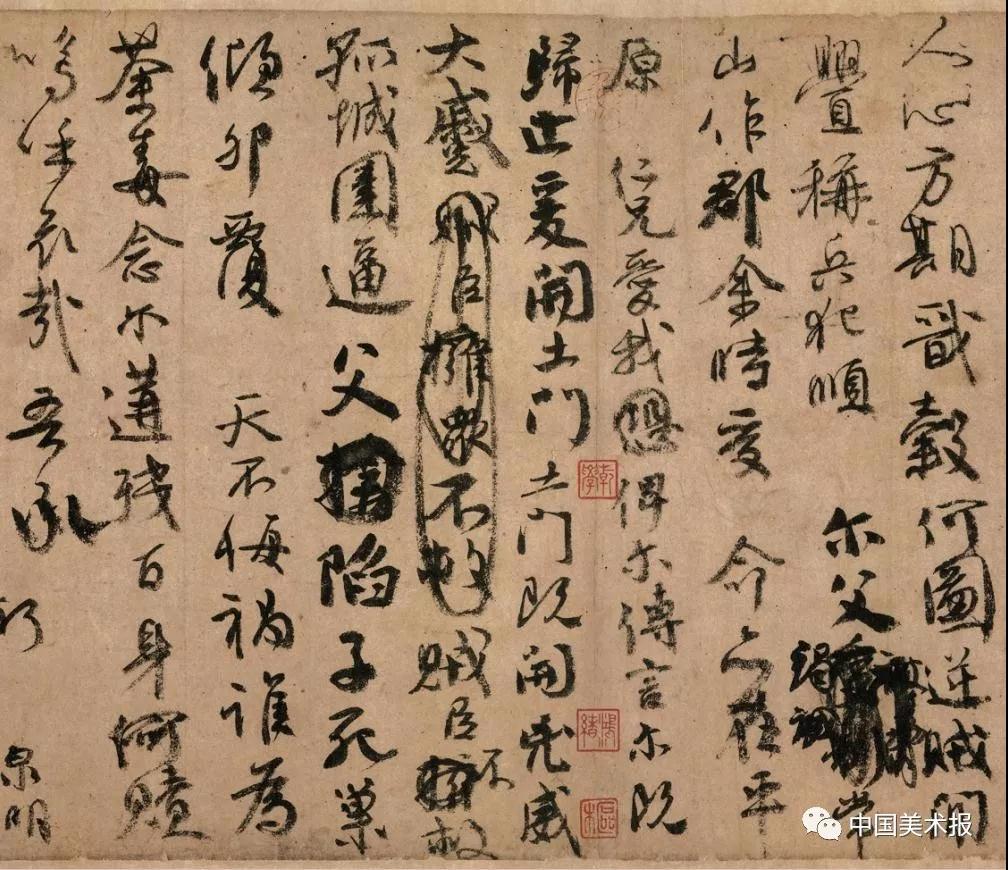 人心方期戩穀何圖逆賊閒
舋稱兵犯順 尔父竭誠常
山作郡余時受 命亦在平
原 仁兄愛我恐俾尔傳言尔既
歸止爰開土門土門既開凶威
大蹙賊臣擁衆不救賊臣不救
孤城圍逼父陷子死巢
傾卵覆 天不悔禍誰為
荼毒念尔遘殘百身何贖
嗚呼哀哉吾承 泉明
中国美术报